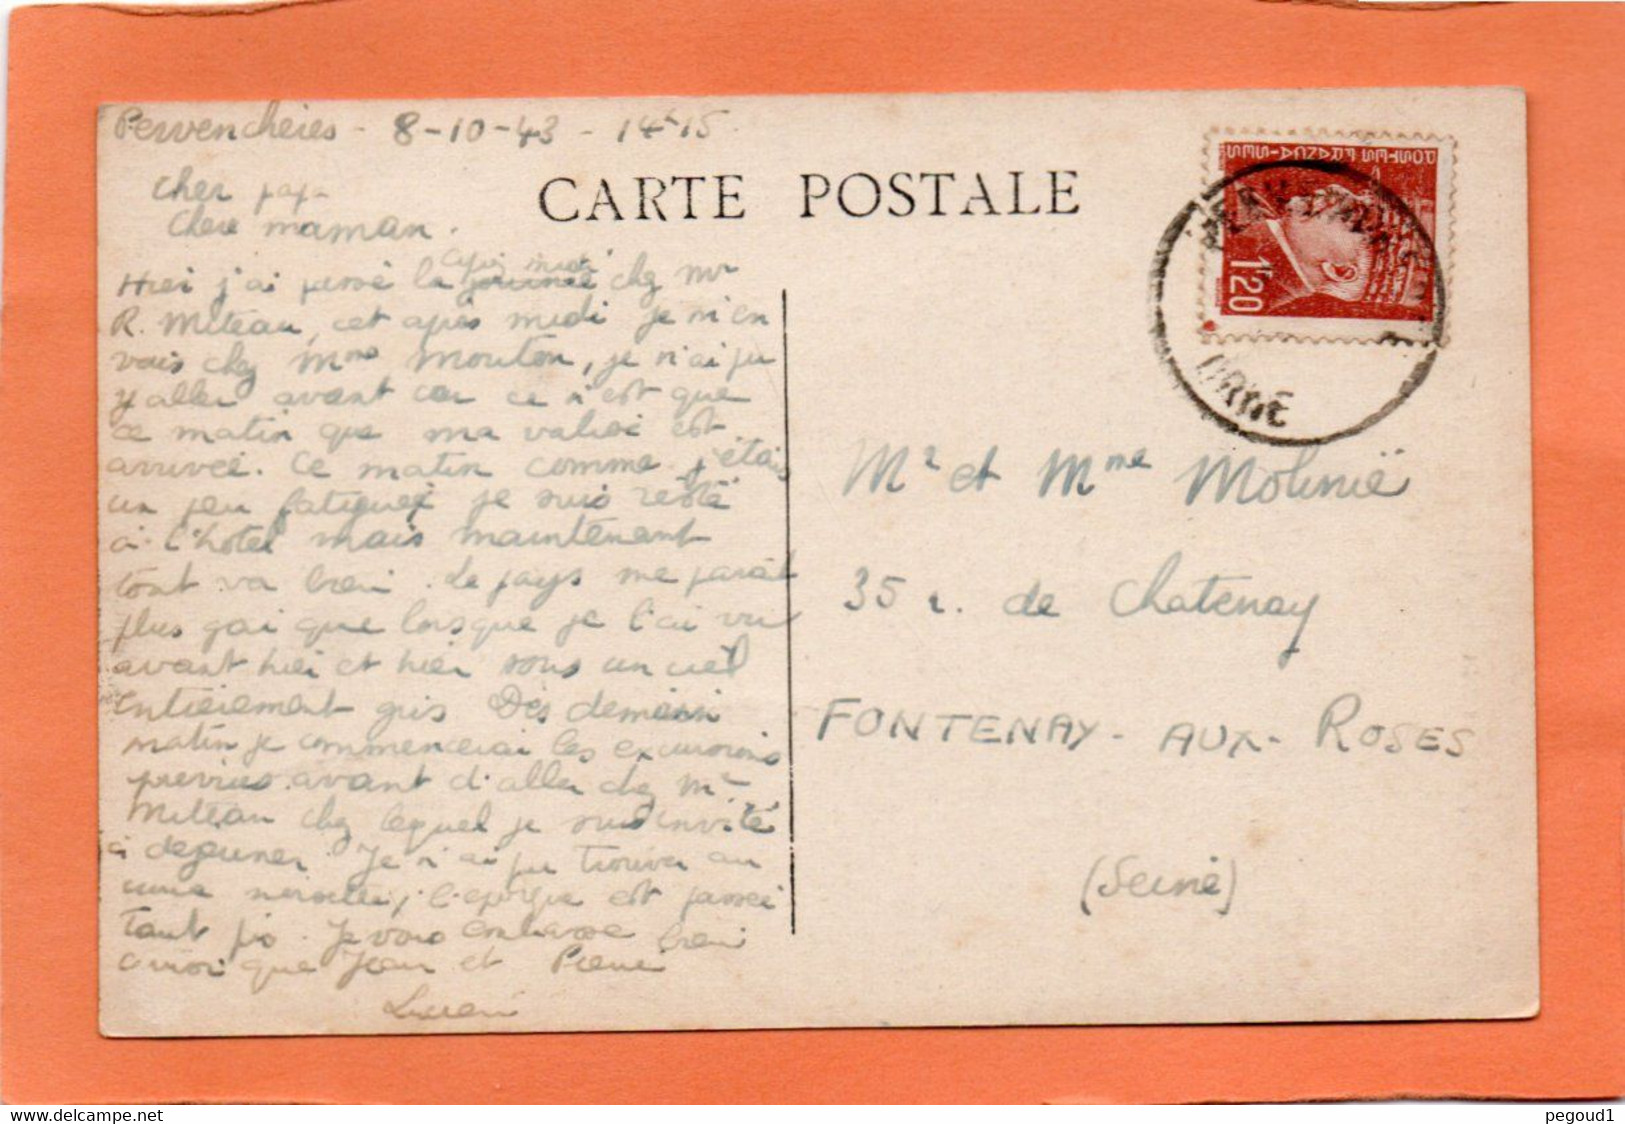 Pervenchères - 8-10-43 - 14h15
CARTE POSTALE
Cher papa
Chère maman.
après midi
Hier j'ai passé la journée chez Mr
R. Miteau, cet après midi je m'en
vais chez Mme Mouton, je n'ai pu
y aller avant car ce n'est que
ce matin que ma valise est
arrivée. Ce matin comme j'étais
un peu fatigué je suis resté
à l'hôtel mais maintenant
tout va bien. Le pays me parait
plus gai que lorsque je l'ai vu
avant hier et hier sous un ciel
entièrement gris Dès demain
matin je commencerai les excursions
prévues avant d'aller chez Mr
Miteau chez lequel je suis invité
à dejeuner. Je n'ai pu trouver au
cune l'epoque est passée
tant pis. Je vous embrasse bien
ainsi que Jean et Pierre
Lucien
Mr et Mme Molinié
35 r. de Chatenay
FONTENAY-AUX-ROSES
(Seine)
POSTES FRANÇAISES
1F20
ORNE
pegoud1
www.delcampe.net